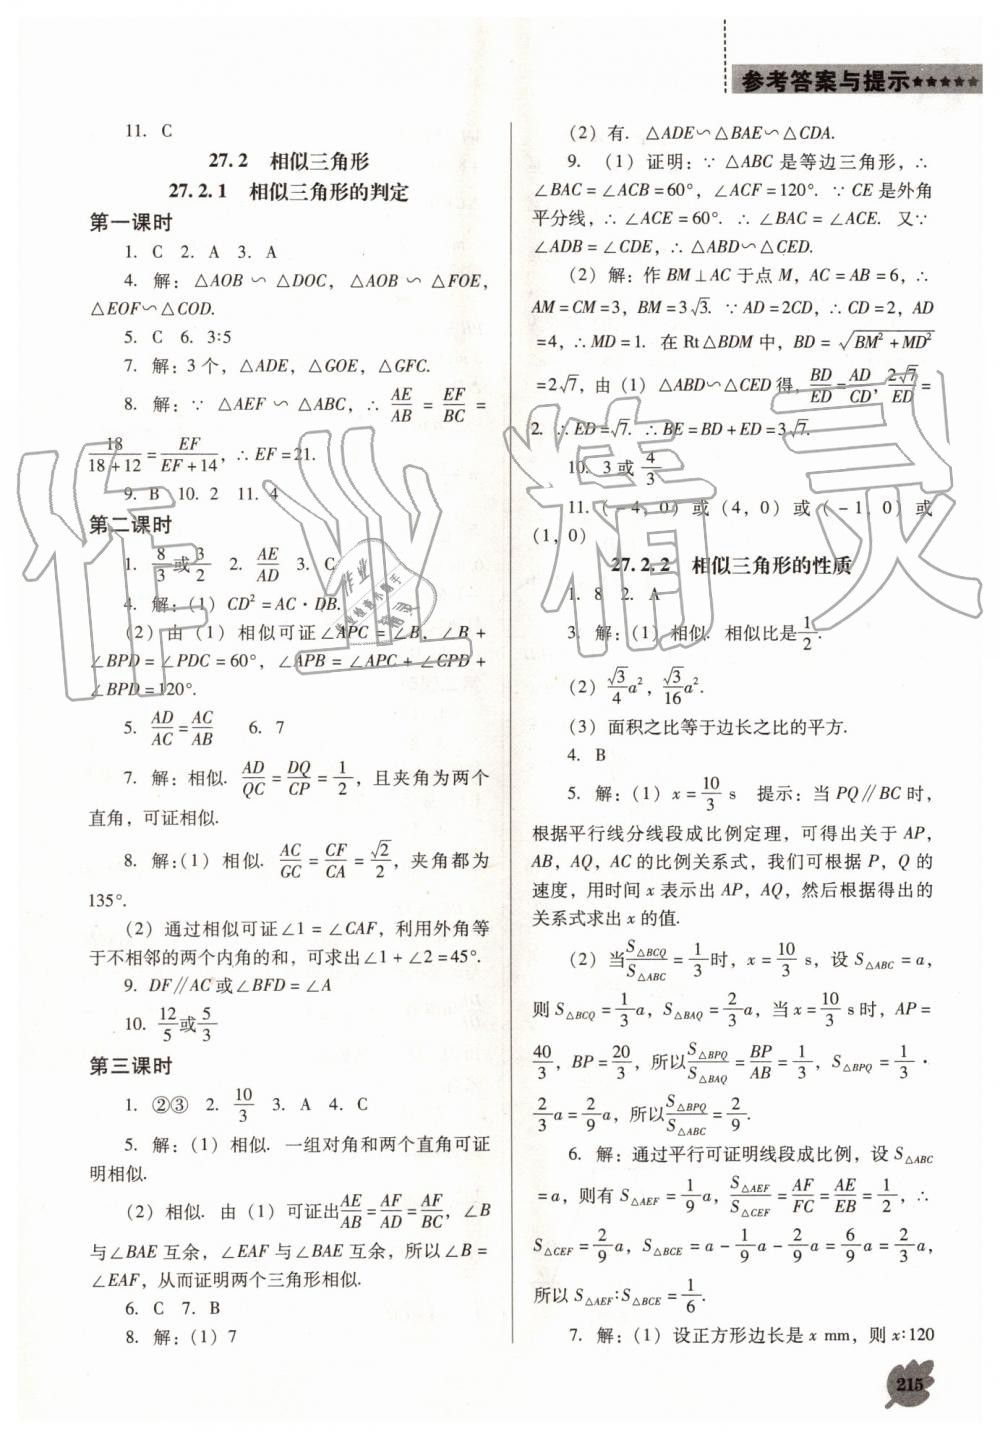 参考答案与提示★★★★★
11. C
27.2 相似三角形
27.2.1 相似三角形的判定
第一课时
1. C 2. A 3. A
4. 解:△AOB∽△DOC, △AOB∽△FOE,
△EOF∽△COD.
5. C 6. 3∶5
7. 解:3个,△ADE,△GOE,△GFC.
8. 解:∵ △AEF∽△ABC,∴ AE/AB = EF/BC =
18/(18+12) = EF/(EF+14),∴EF=21.
9. B 10. 2 11. 4
第二课时
1. 8/3或3/2 2. AE/AD 3. C
4. 解:(1) CD²=AC·DB.
(2) 由(1)相似可证∠APC=∠B. ∠B+
∠BPD=∠PDC=60°, ∠APB=∠APC+∠CPD+
∠BPD=120°.
5. AD/AC=AC/AB 6. 7
7. 解:相似. AD/QC=DQ/CP=1/2,且夹角为两个
直角,可证相似.
8. 解:(1) 相似. AC/GC=CF/CA=√2/2,夹角都为
135°.
(2) 通过相似可证∠1=∠CAF,利用外角等
于不相邻的两个内角的和,可求出∠1+∠2=45°.
9. DF∥AC或∠BFD=∠A
10. 12/5或5/3
第三课时
1. ②③ 2. 10/3 3. A 4. C
5. 解:(1) 相似. 一组对角和两个直角可证
明相似.
(2) 相似. 由(1)可证出AE/AB=AF/AD=AF/BC,∠B
与∠BAE互余,∠EAF与∠BAE互余,所以∠B=
∠EAF,从而证明两个三角形相似.
6. C 7. B
8. 解:(1) 7
(2) 有. △ADE∽△BAE∽△CDA.
9. (1) 证明:∵ △ABC是等边三角形,∴
∠BAC=∠ACB=60°,∠ACF=120°. ∵ CE是外角
平分线,∴∠ACE=60°. ∴∠BAC=∠ACE. 又∵
∠ADB=∠CDE,∴△ABD∽△CED.
(2) 解:作BM⊥AC于点M,AC=AB=6,∴
AM=CM=3,BM=3√3. ∵ AD=2CD,∴CD=2,AD
=4,∴MD=1. 在Rt△BDM中,BD=√(BM²+MD²)
=2√7,由(1)△ABD∽△CED得,BD/ED=AD/CD,2√7/ED=
2. ∴ED=√7. ∴BE=BD+ED=3√7.
10. 3或4/3
11. (-4,0)或(4,0)或(-1,0)或
(1,0)
27.2.2 相似三角形的性质
1. 8 2. A
3. 解:(1) 相似. 相似比是1/2.
(2) √3/4a²,√3/16a².
(3) 面积之比等于边长之比的平方.
4. B
5. 解:(1) x=10/3 s 提示:当PQ∥BC时,
根据平行线分线段成比例定理,可得出关于AP,
AB,AQ,AC的比例关系式,我们可根据P,Q的
速度,用时间x表示出AP,AQ,然后根据得出的
关系式求出x的值.
(2) 当S△BCQ/S△ABC=1/3时,x=10/3 s,设S△ABC=a,
则S△BCQ=1/3a,S△BAQ=2/3a,当x=10/3 s时,AP=
40/3,BP=20/3,所以S△BPQ/S△BAQ=BP/AB=1/3,S△BPQ=1/3·
2/3a=2/9a,所以S△BPQ/S△ABC=2/9.
6. 解:通过平行可证明线段成比例,设S△ABC
=a,则有S△AEF=1/9a,S△AEF/S△CEF=AF/FC=AE/EB=1/2,∴
S△CEF=2/9a,S△BCE=a-1/9a-2/9a=6/9a=2/3a,
所以S△AEF∶S△BCE=1/6.
7. 解:(1) 设正方形边长是x mm,则x∶120
215
作业精灵